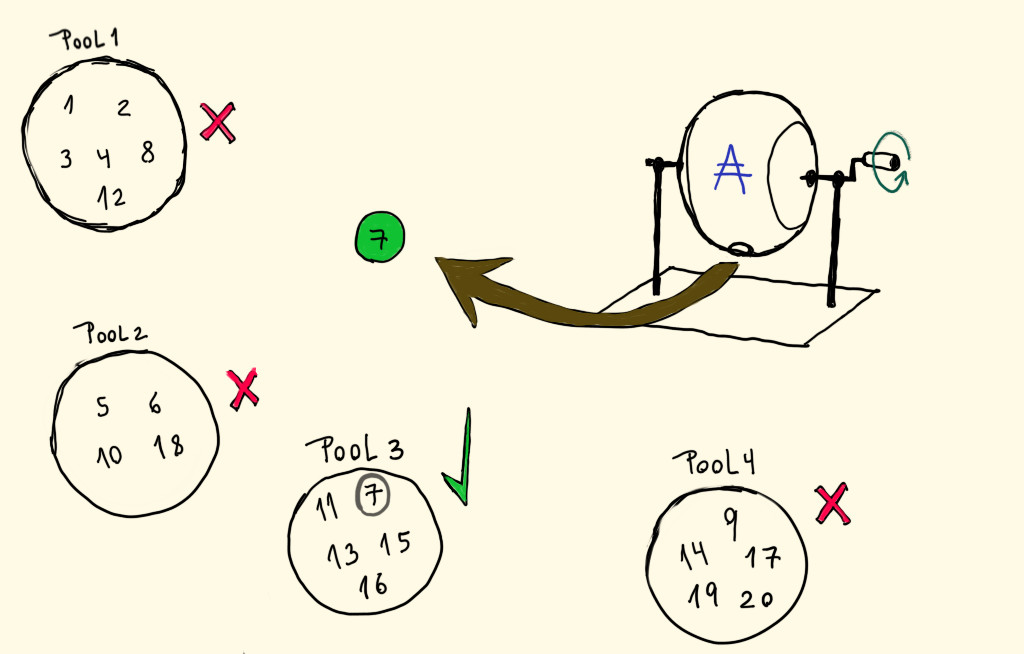 POOL 1
1 2
3 4 8
12
A
7
POOL 2
5 6
10 18
POOL 3
11 7
13 15
16
POOL 4
9
14 17
19 20